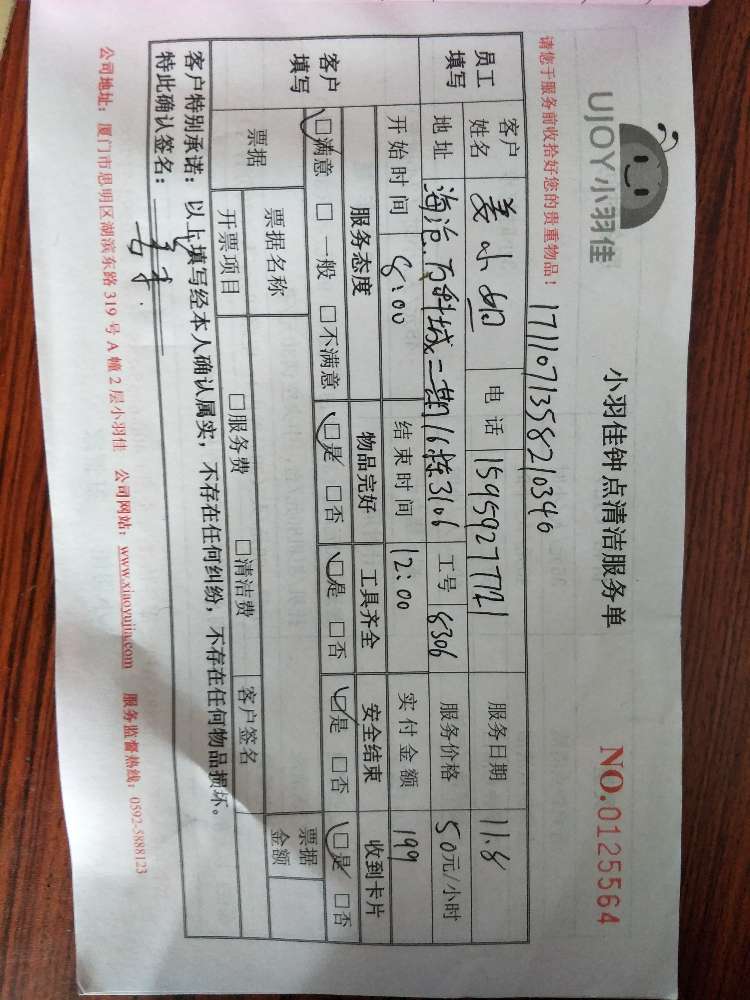 UJOY小羽佳
小羽佳钟点清洁服务单
NO.0125564
请您于服务前收拾好您的贵重物品!
1711071358210340
员工填写
客户姓名 姜小姐 电话 15959277121 服务日期 11.8
地址 海沧万科城二期16栋3106 工号 8306 服务价格 50元/小时
开始时间 8:00 结束时间 12:00 实付金额 199
客户填写
服务态度 物品完好 工具齐全 安全结束 收到卡片
□满意 □一般 □不满意 □是 □否 □是 □否 □是 □否 □是 □否
票据 票据名称 票据金额
开票项目 □服务费 □清洁费 客户签名
客户特别承诺:以上填写经本人确认属实,不存在任何纠纷,不存在任何物品损坏。
特此确认签名:
公司地址:厦门市思明区湖滨东路319号A幢2层小羽佳 公司网站:www.xiaoyujia.com 服务监督热线:0592-5888123